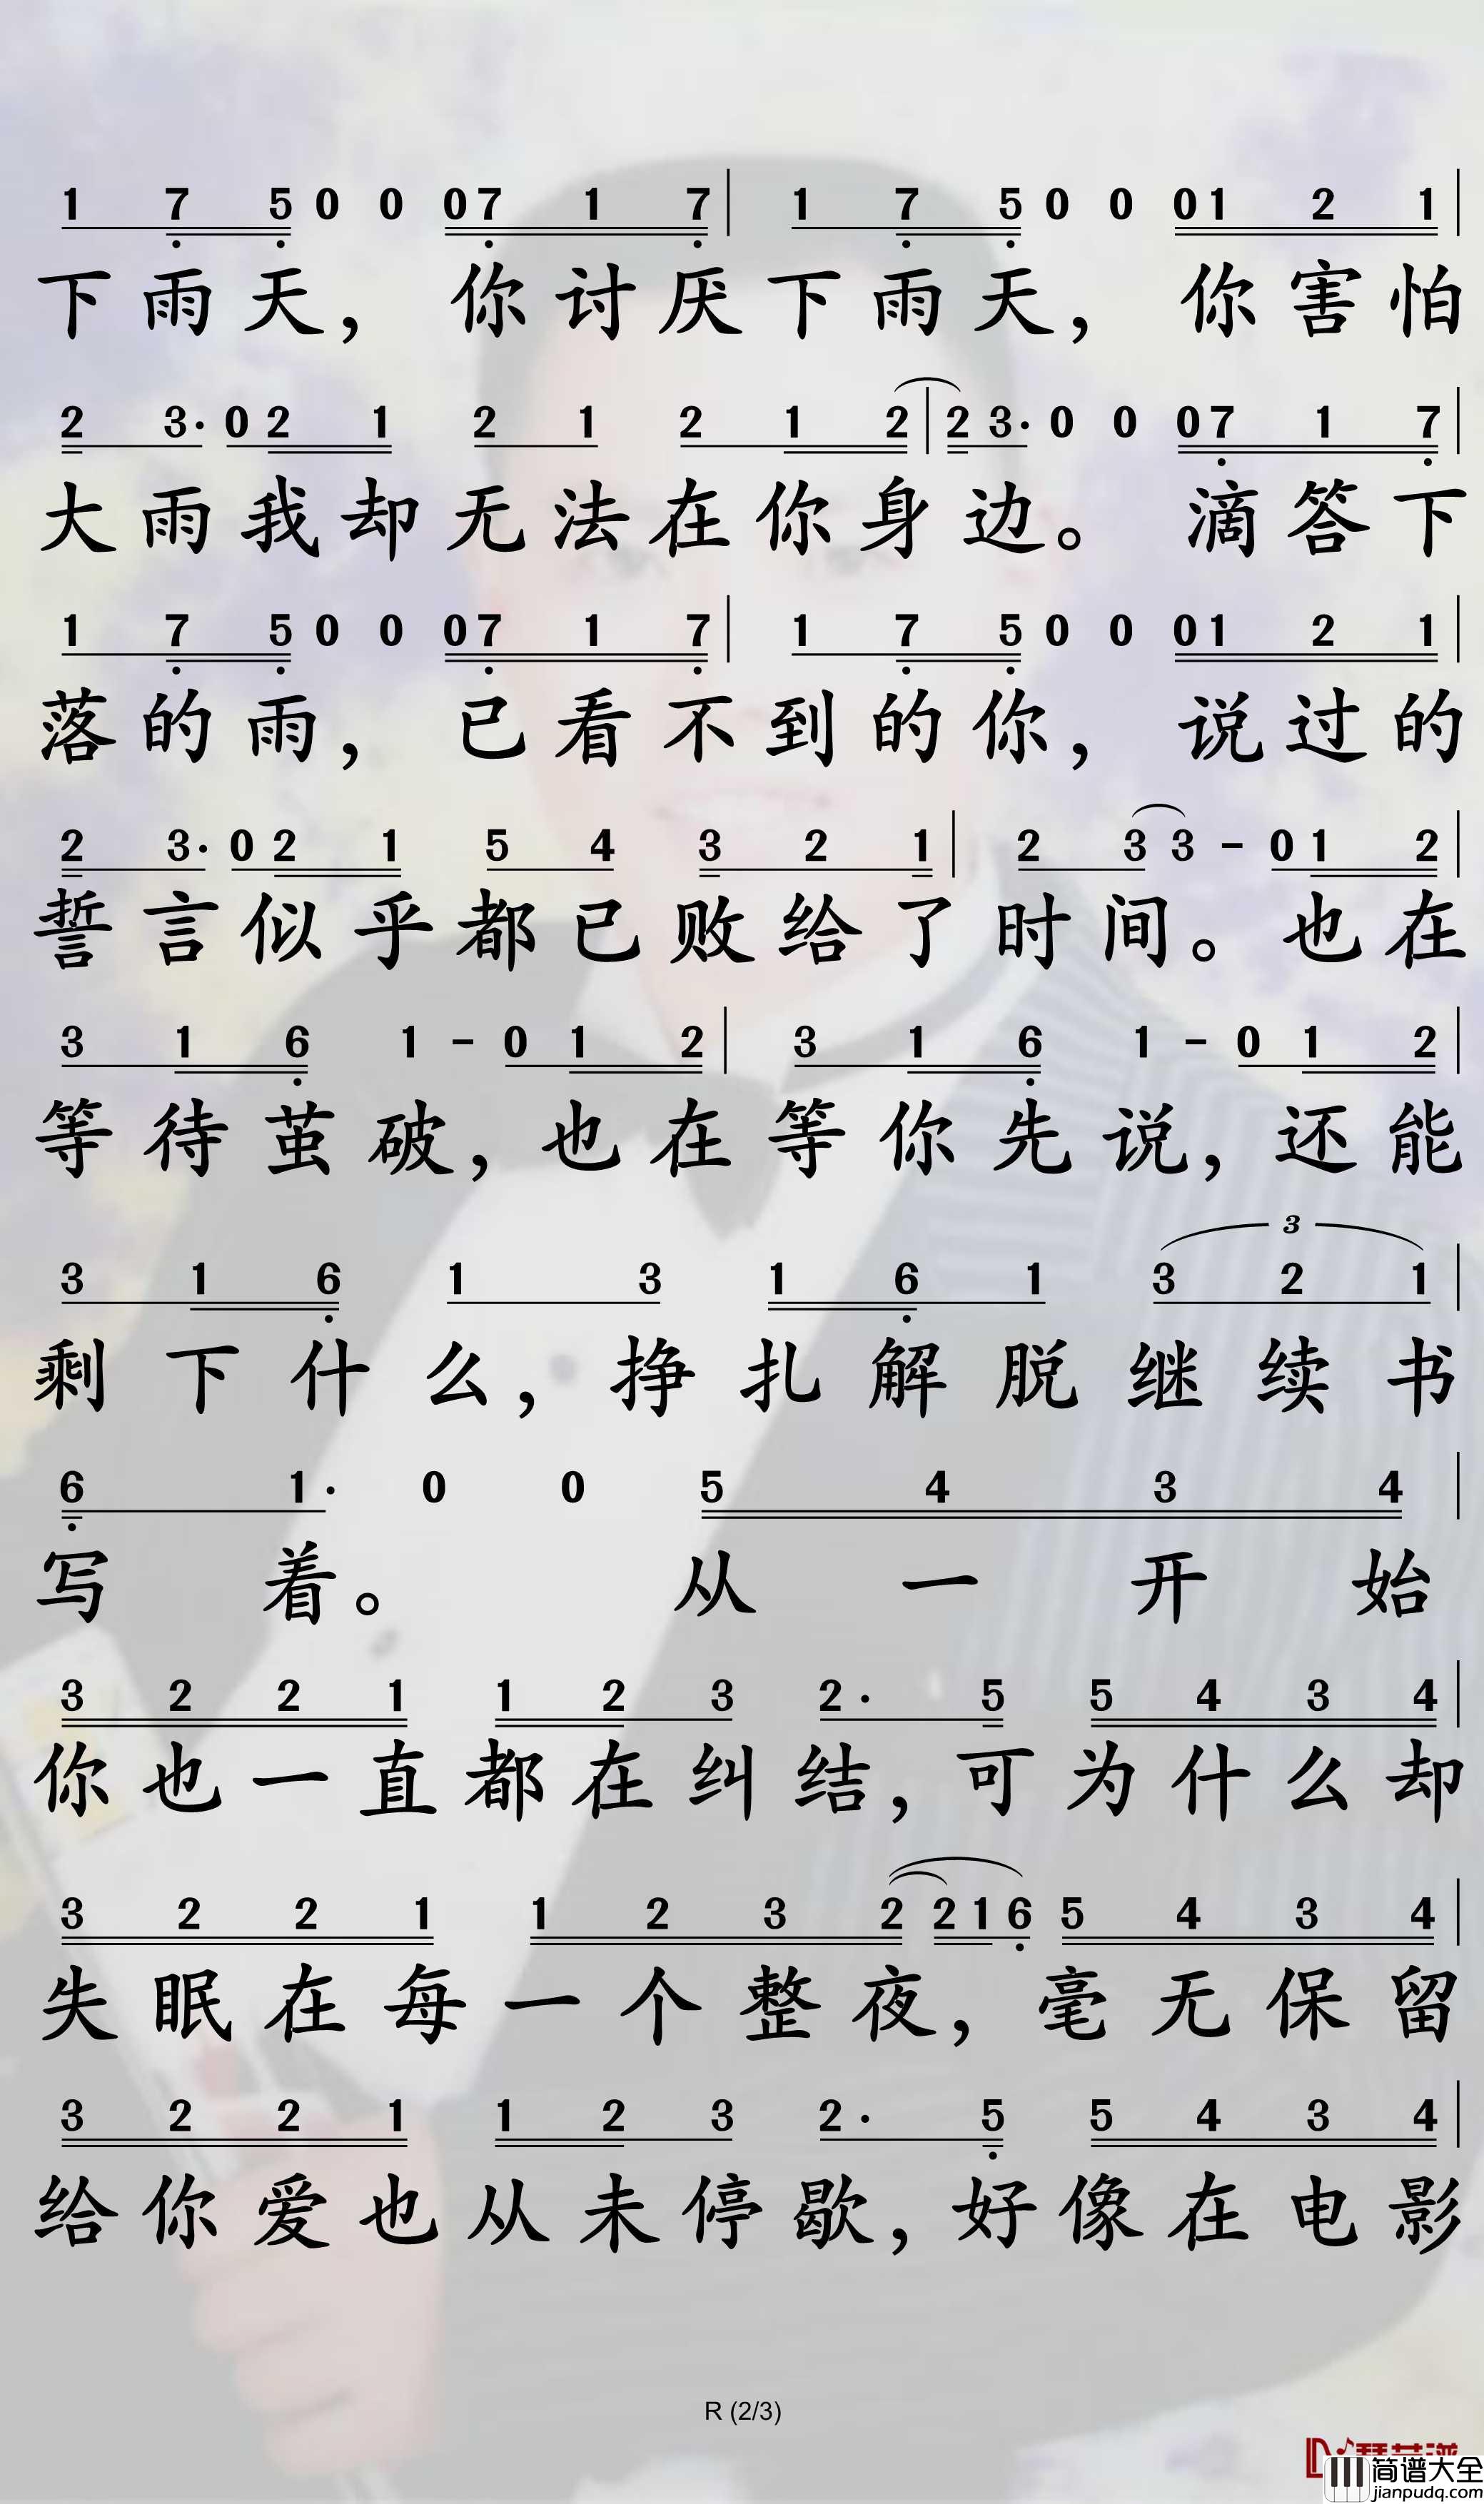 1 7 5 0 0 0 7 1 7 | 1 7 5 0 0 0 1 2 1 |
下雨天， 你讨厌下雨天， 你害怕
2 3· 0 2 1 2 1 2 1 2 | 2 3· 0 0 0 7 1 7 |
大雨我却无法在你身边。 滴答下
1 7 5 0 0 0 7 1 7 | 1 7 5 0 0 0 1 2 1 |
落的雨， 已看不到的你， 说过的
2 3· 0 2 1 5 4 3 2 1 | 2 3 3 - 0 1 2 |
誓言似乎都已败给了时间。也在
3 1 6 1 - 0 1 2 | 3 1 6 1 - 0 1 2 |
等待茧破，也在等你先说，还能
3
3 1 6 1 3 1 6 1 3 2 1 |
剩下什么，挣扎解脱继续书
6 1· 0 0 5 4 3 4 |
写着。 从一开始
3 2 2 1 1 2 3 2· 5 5 4 3 4 |
你也一直都在纠结，可为什么却
3 2 2 1 1 2 3 2 2 1 6 5 4 3 4 |
失眠在每一个整夜，毫无保留
3 2 2 1 1 2 3 2· 5 5 4 3 4 |
给你爱也从未停歇，好像在电影
R (2/3)
简谱大全
jianpudq.com